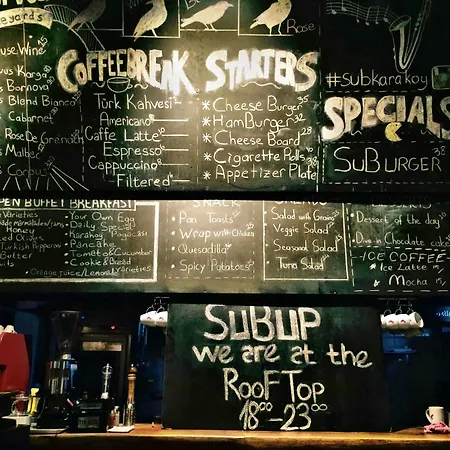 yeards
House Wine
Karga
Bornova
Blend Bianco
Cabernet
Rose De Grenach
Malbec
Corpus
Rose
COFFEEBREAK
Türk Kahvesi
Americano
Caffe Latte
Espresso
Cappuccino
Filtered
STARTERS
* Cheese Burger
* HamBurger
* Cheese Board 28
* Cigarette Rolls
* Appetizer Plate
#subkarakoy
SPECIALS
SuBurger 38
OPEN BUFFET BREAKFAST
Varieties
Honey
Butter
Your Own Egg
Daily Special
Karaköy
Pancake
Tomato&Cucumber
Cookie & Bread
Orange juice/Lemonade
SNACK
* Pan Toasts
* Wrap with Chicken
* Quesadilla
* Spicy Potatoes
Salad with Grains
Veggie Salad
Seasonal Salad
Tuna Salad
Dessert of the day
Dive in Chocolate cake
ICE COFFEE
* Ice Latte
* Mocha
SUBUP
we are at the
RooFTop
18:00 - 23:00